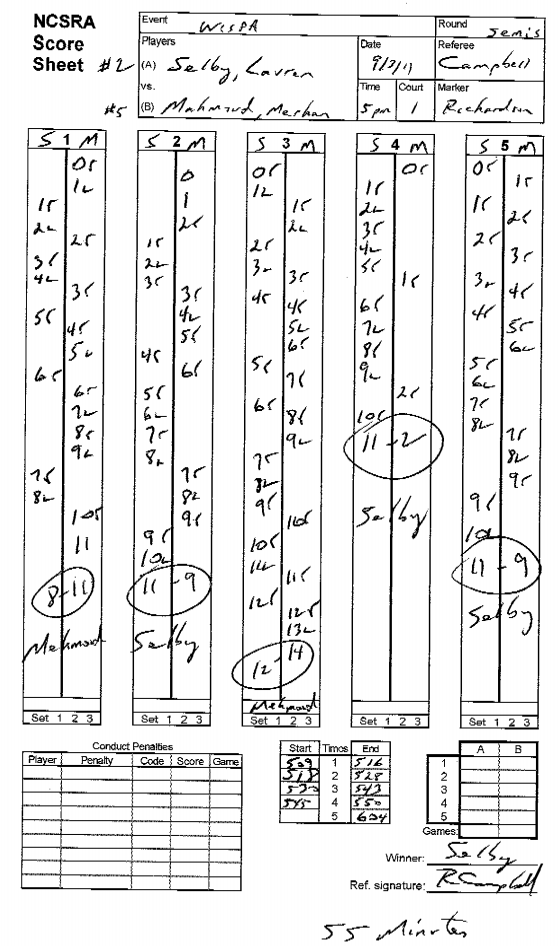 NCSRA
Score
Sheet #2
Event WISPA
Round Semis
Players
(A) Selby, Lauren
vs.
#5 (B) Mahmoud, Merhan
Date 9/3/11
Referee Campbell
Time 5pm
Court 1
Marker Richardson
S 1 M
0r
1L
1r
2L
2r
3r
4L
3r
5r
4r
5L
6r
6r
7L
8r
9L
7r
8L
10r
11
8-11
Mahmoud
Set 1 2 3
S 2 M
0
1
2r
1r
2L
3r
3r
4L
5r
4r
6r
5r
6L
7r
8L
7r
8L
9r
9r
10L
11-9
Selby
Set 1 2 3
S 3 M
0r
1L
1r
2L
2r
3L
3r
4r
4r
5L
6r
5r
7r
6r
8r
9L
7r
8L
9r
10r
10r
11L
11r
12r
12r
13L
12-14
Mahmoud
Set 1 2 3
S 4 M
0r
1r
2L
3r
4L
5r
1r
6r
7L
8r
9L
2r
10r
11-2
Selby
Set 1 2 3
S 5 M
0r
1r
1r
2r
2r
3r
3L
4r
4r
5r
6L
5r
6L
7r
8L
7r
8L
9r
9r
10L
11-9
Selby
Set 1 2 3
Conduct Penalties
Player Penalty Code Score Game
Start Times End
509 1 516
518 2 528
530 3 543
545 4 550
5 604
A B
1
2
3
4
5
Games:
Winner: Selby
Ref. signature: R Campbell
55 Minutes